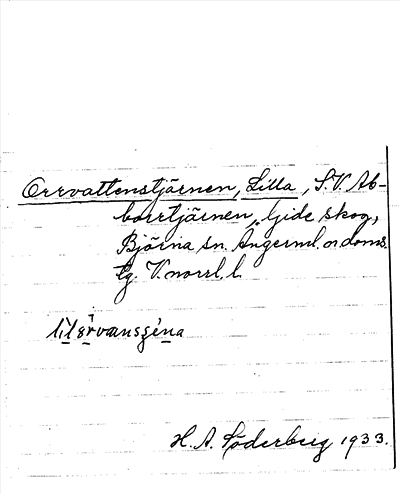 Orrvattenstjärnen, Lilla, S.V. Ab-
borrtjärnen, Gide skog,
Björna sn. Ångerml. n doms.
tg. V.norrl. l.
H. A. Söderberg 1933.